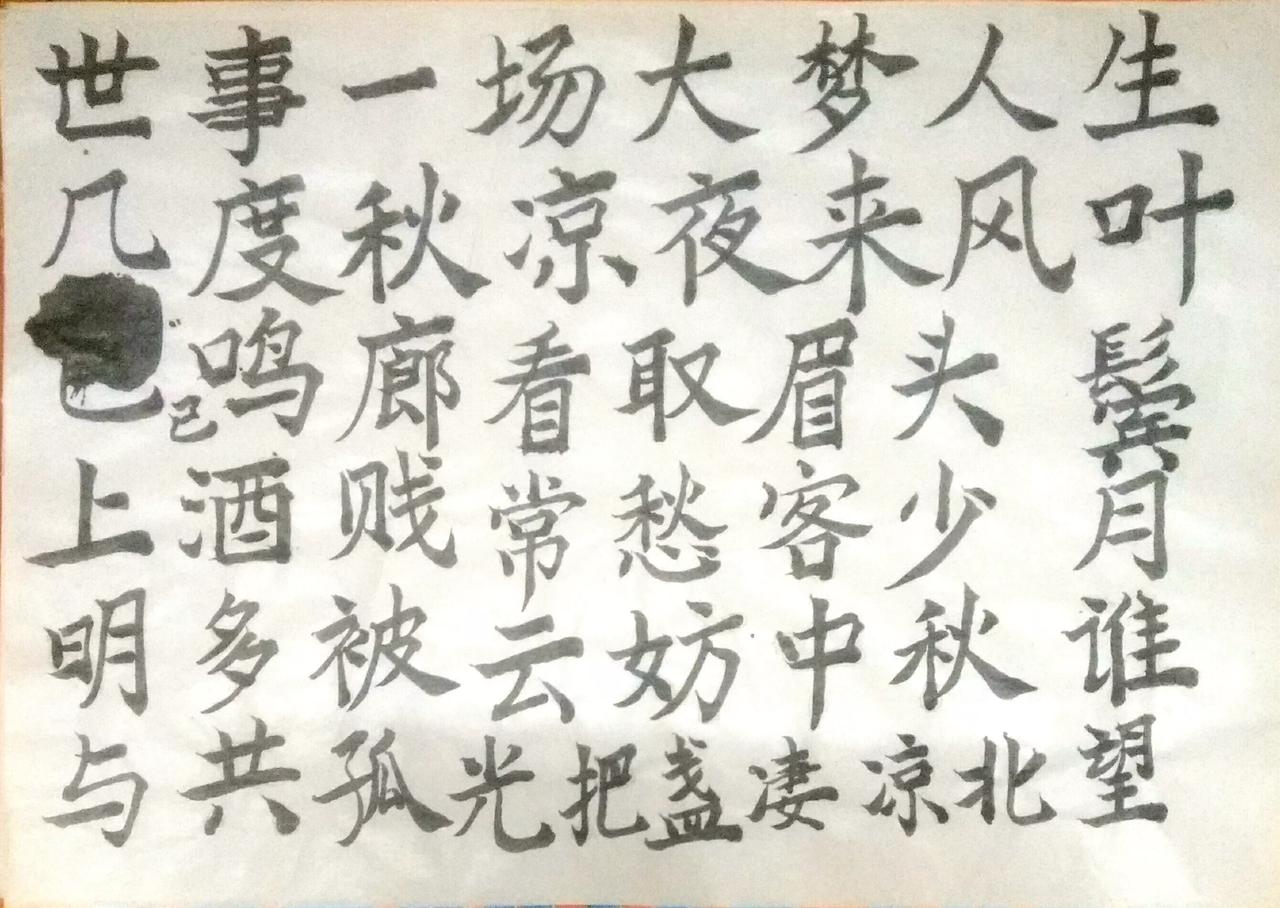 世事一场大梦人生
几度秋凉夜来风叶
已鸣廊看取眉头鬓
上酒贱常愁客少月
明多被云妨中秋谁
与共孤光把盏凄凉北望